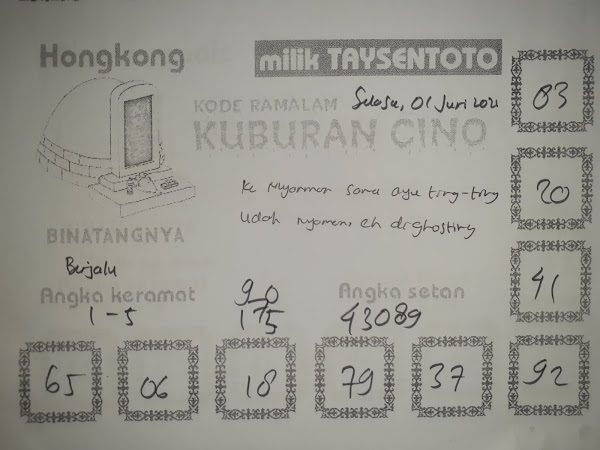 Hongkong
milik TAYSENTOTO
KODE RAMALAM Selasa, 01 Juni 2021
KUBURAN CINO
03
Ke Myanmar sama ayu ting-ting
Udah nyaman, eh dighosting
20
BINATANGNYA
Berjalu
41
Angka keramat
1-5
90
175
Angka setan
43089
65 06 18 79 37 92